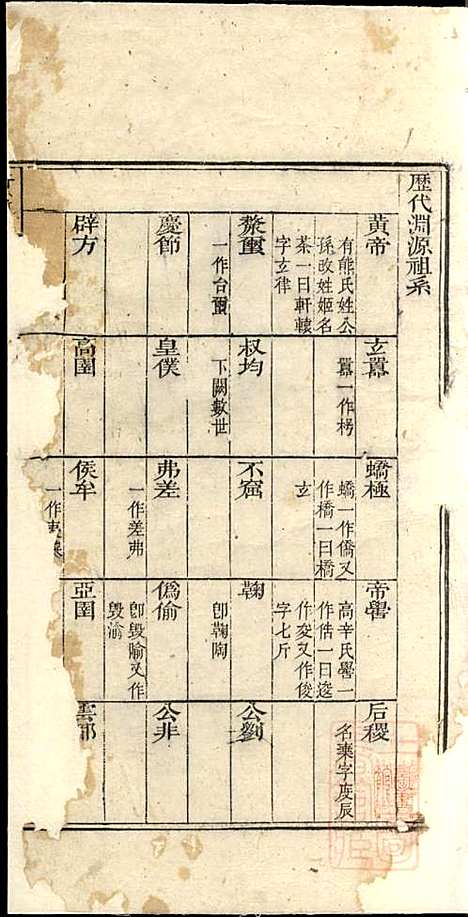 歷代淵源祖系
黃帝
有熊氏姓公
孫改姓姬名
荼一曰軒轅
字玄律
玄囂
囂一作枵
蟜極
蟜一作僑又
作橋一曰橋
玄
帝嚳
高辛氏嚳一
作俈一曰逡
作夋又作俊
字七斤
后稷
名棄字度辰
漦璽
一作台璽
叔均
下闕數世
不窋
鞠
卽鞠陶
公劉
慶節
皇僕
弗差
一作差弗
僞偷
卽毀隃又作
毀渝
公非
辟方
高圉
侯牟
亞圉
雲都